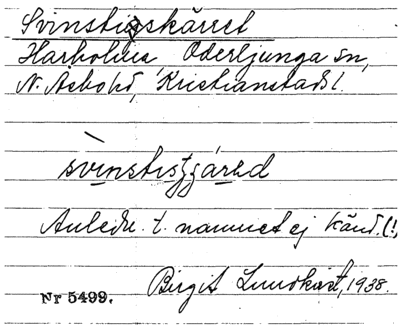 Svinstigskärret
Harholma Oderljunga sn,
N. Åsbo hd, Kristianstads l.
svinstistjǥárəd
Anledn. t. namnet ej känd. (!)
Birgit Lundkvist, 1938.
Nr 5499.